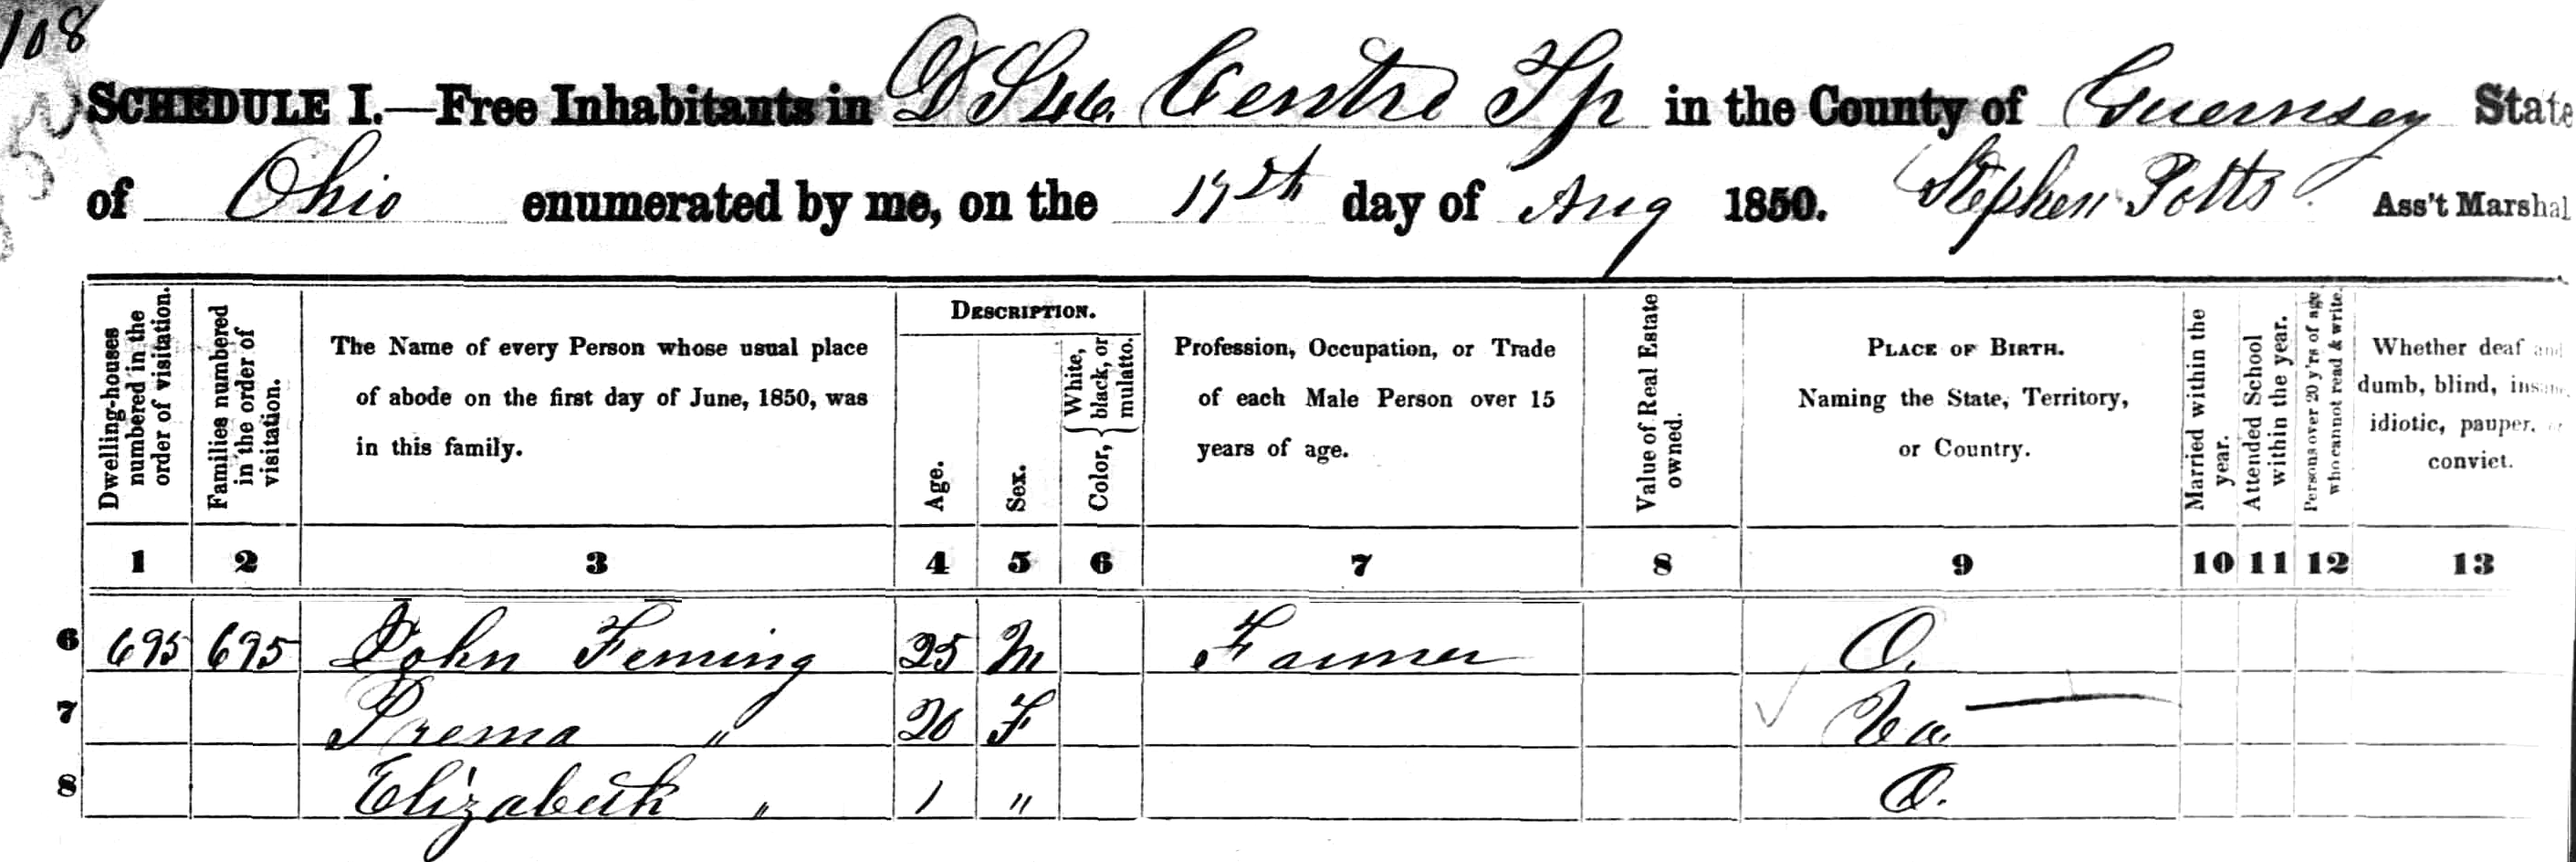 108
SCHEDULE I.—Free Inhabitants in D S 46. Centre Tp in the County of Guernsey State
of Ohio enumerated by me, on the 17th day of Aug 1850. Stephen Potts Ass't Marshal
Dwelling-houses numbered in the order of visitation.
Families numbered in the order of visitation.
The Name of every Person whose usual place
of abode on the first day of June, 1850, was
in this family.
DESCRIPTION.
Age.
Sex.
Color, { White, black, or mulatto.
Profession, Occupation, or Trade
of each Male Person over 15
years of age.
Value of Real Estate owned.
PLACE OF BIRTH.
Naming the State, Territory,
or Country.
Married within the year.
Attended School within the year.
Persons over 20 y'rs of age who cannot read & write.
Whether deaf and
dumb, blind, insane,
idiotic, pauper, or
convict.
1 2 3 4 5 6 7 8 9 10 11 12 13
6 695 695 John Feming 25 M Farmer O.
7 Prema " 20 F Va.
8 Elizabeth " 1 " O.